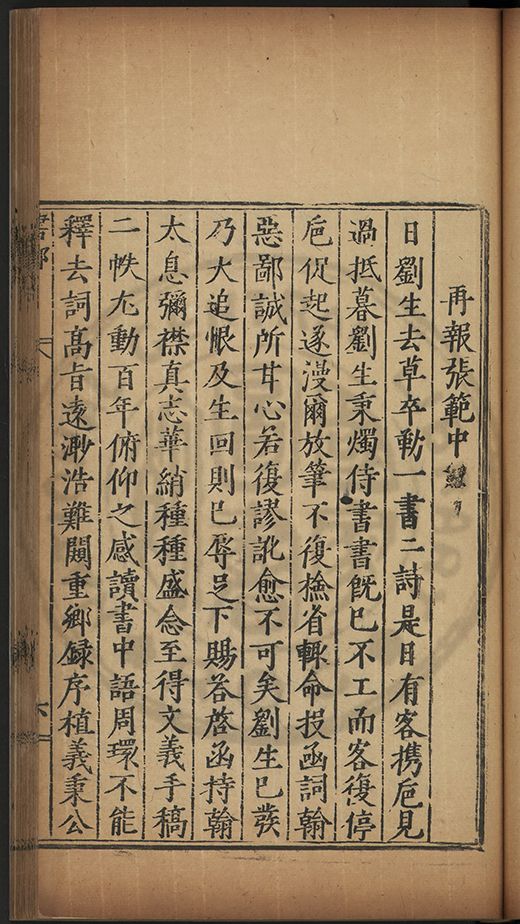 再報張範中
日劉生去草卒勒一書二詩是日有客携巵見
過抵暮劉生秉燭侍書書旣已不工而客復停
巵促起遂漫爾放筆不復撿省輙命投函詞翰
惡鄙誠所甘心若復謬訛愈不可矣劉生已發
乃大追恨及生回則已辱足下賜荅啓函持翰
太息彌襟真志華綃種種盛念至得文義手稿
二帙尤動百年俯仰之感讀書中語周環不能
釋去詞高旨遠渺浩難闚重鄉録序植義秉公